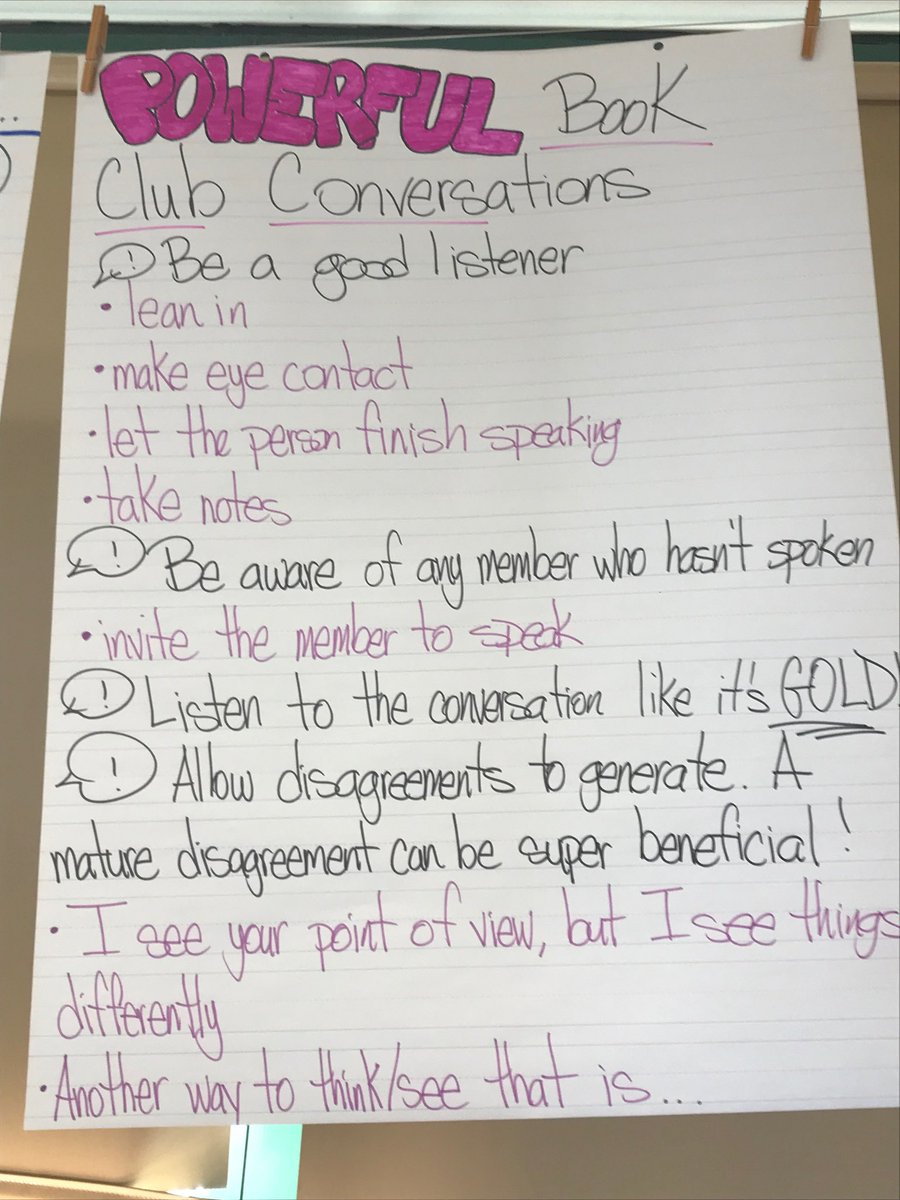 POWERFUL Book
Club Conversations
! Be a good listener
• lean in
• make eye contact
• let the person finish speaking
• take notes
! Be aware of any member who hasn't spoken
• invite the member to speak
! Listen to the conversation like it's GOLD!
! Allow disagreements to generate. A
mature disagreement can be super beneficial!
• I see your point of view, but I see things
differently
• Another way to think/see that is...